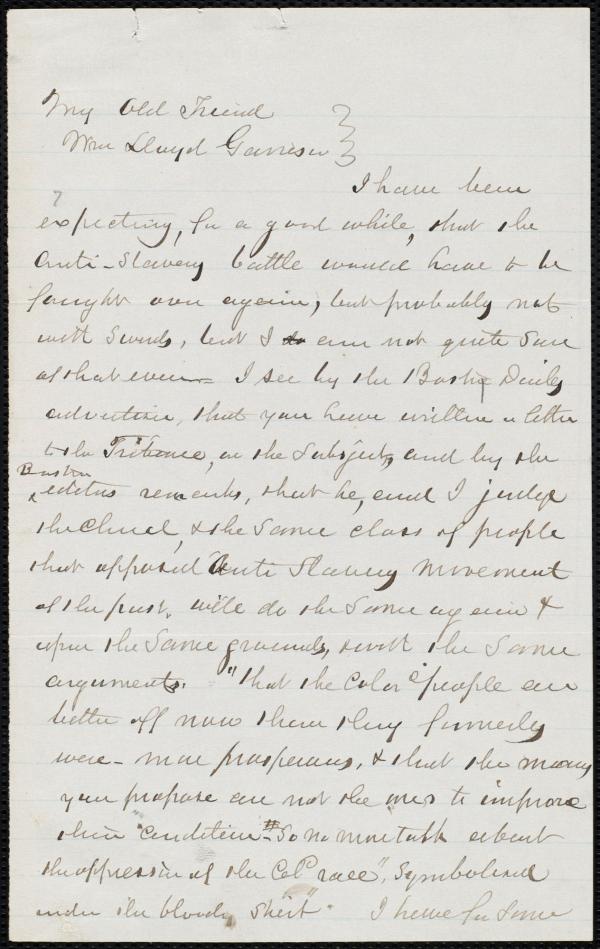 My Old Friend
Wm Lloyd Garrison
I have been
expecting, for a good while, that the
Anti-Slavery battle would have to be
fought over again, but probably not
with swords, but I am not quite sure
of that even — I see by the Boston Daily
advertiser, that you have written a letter
to the Tribune, on the Subject, and by the
Boston
editors remarks, that he, and I judge
the Church, & the Same class of people
that opposed Anti Slavery movement
of the past, will do the Same again &
upon the Same grounds, & with the Same
arguments. "That the Cold people are
better off now than they formerly
were – more prosperous, & that the means
you propose are not the ones to improve
their condition" – "So no more talk about
the oppression of the Cold race", Symbolised
under the bloody Shirt". I have for Some